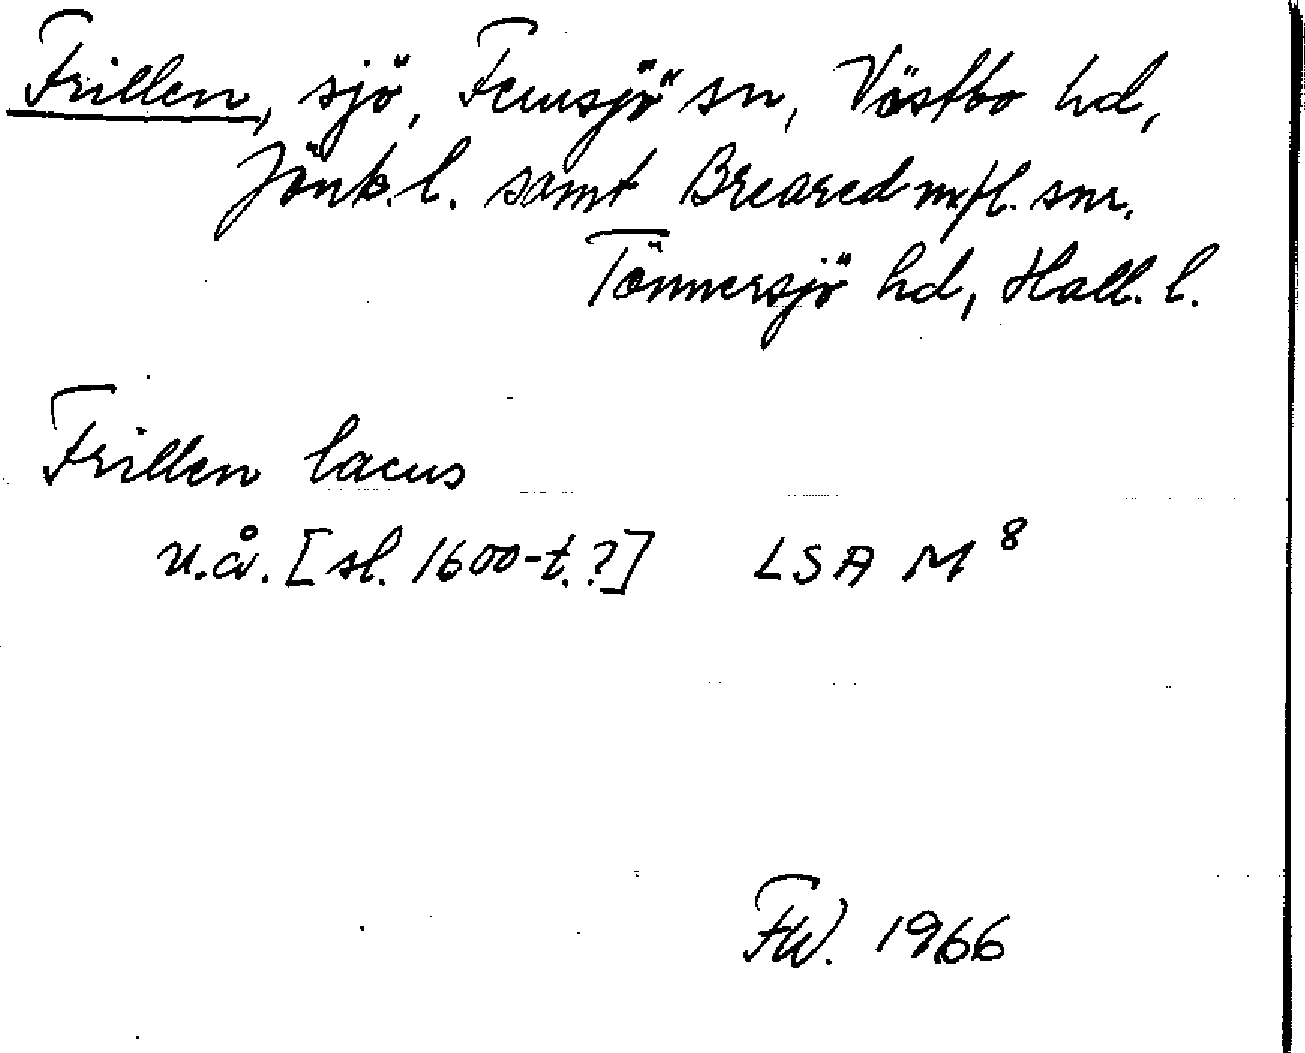 Frillen, sjö, Femsjö sn, Västbo hd,
Jönk. l. samt Breared m.fl. snr.
Tönnersjö hd, Hall. l.
Frillen lacus
u.å. [sl. 1600-t.?] LSA M 8
FW. 1966